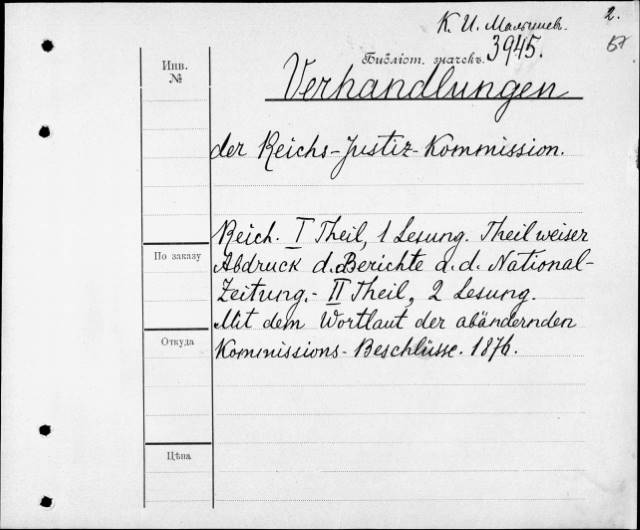 К. И. Малышев.
2.
57
Библіот. значекъ. 3945.
Инв.
№
Verhandlungen
der Reichs-Justiz-Kommission.
Reich. I Theil, 1 Lesung. Theilweiser
По заказу
Abdruck d. Berichte a. d. National-
Zeitung.- II Theil, 2 Lesung.
Mit dem Wortlaut der abändernden
Откуда
Kommissions-Beschlüsse. 1876.
Цѣна